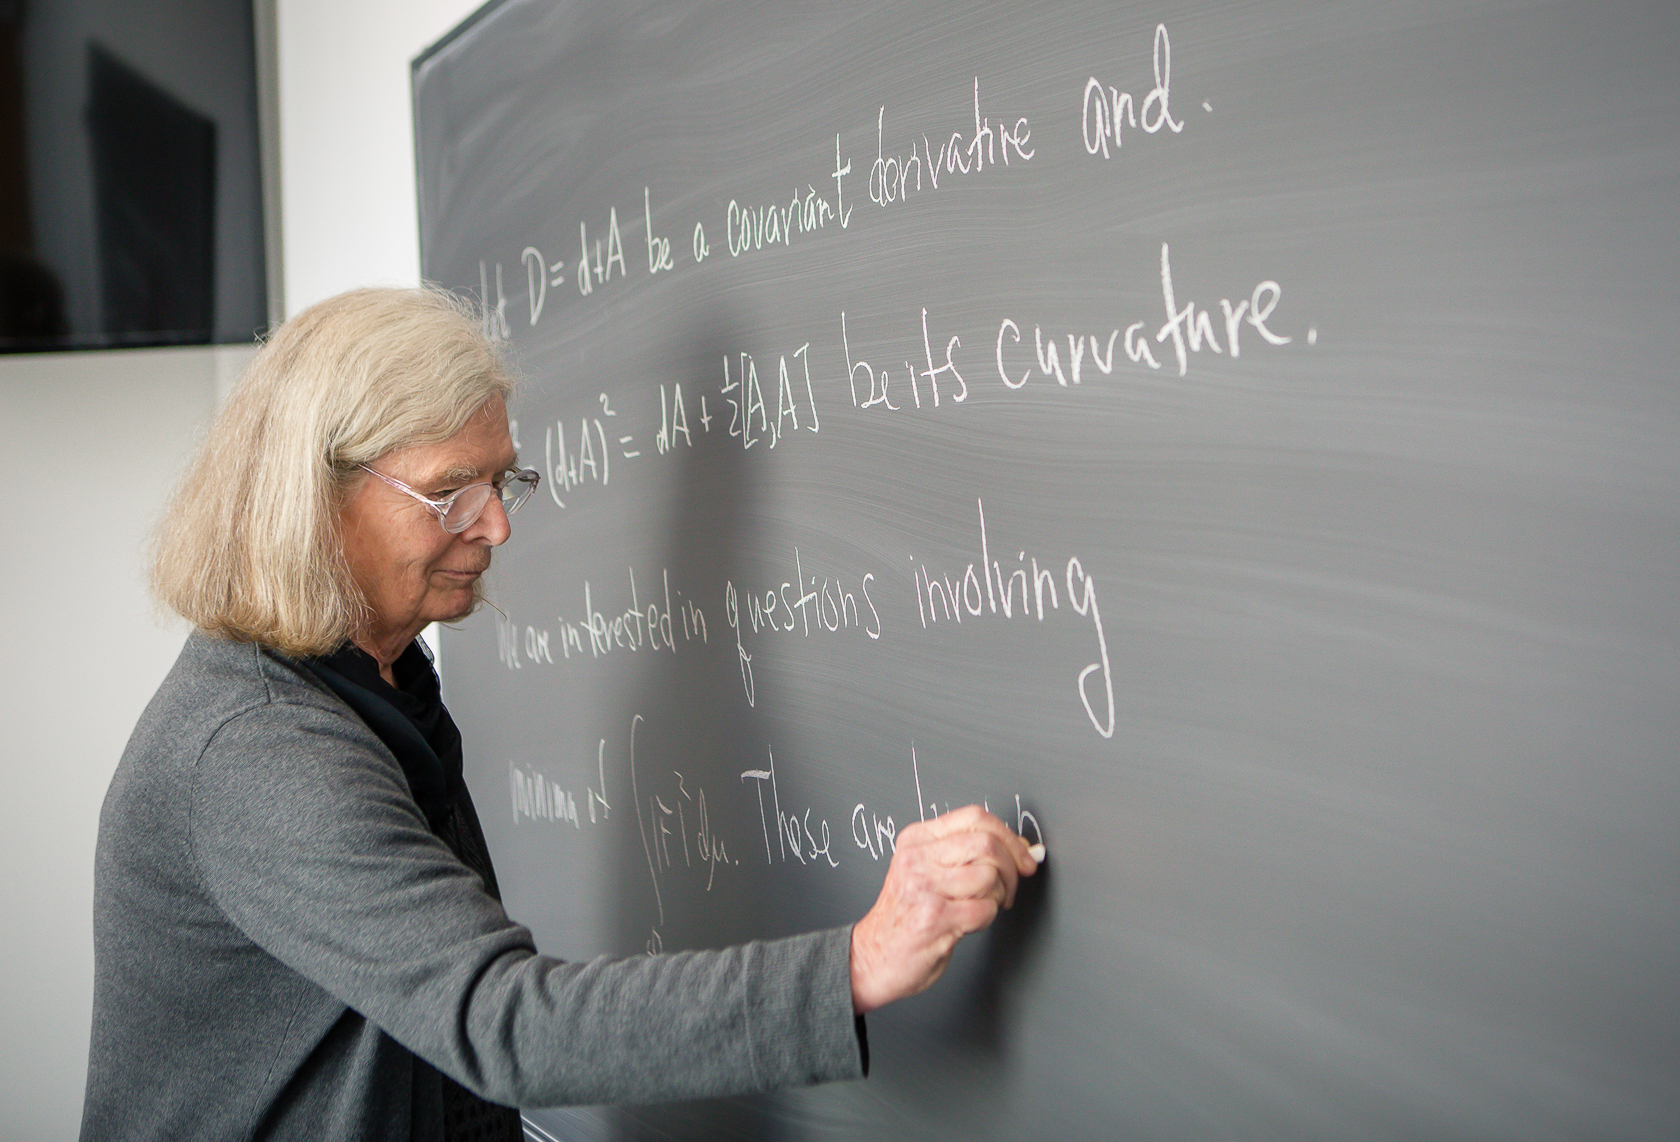 D = d+A be a covariant derivative and.
(d+A)² = dA + ½[A,A] be its curvature.
We are interested in questions involving
minima of ∫|F|²dμ. These are